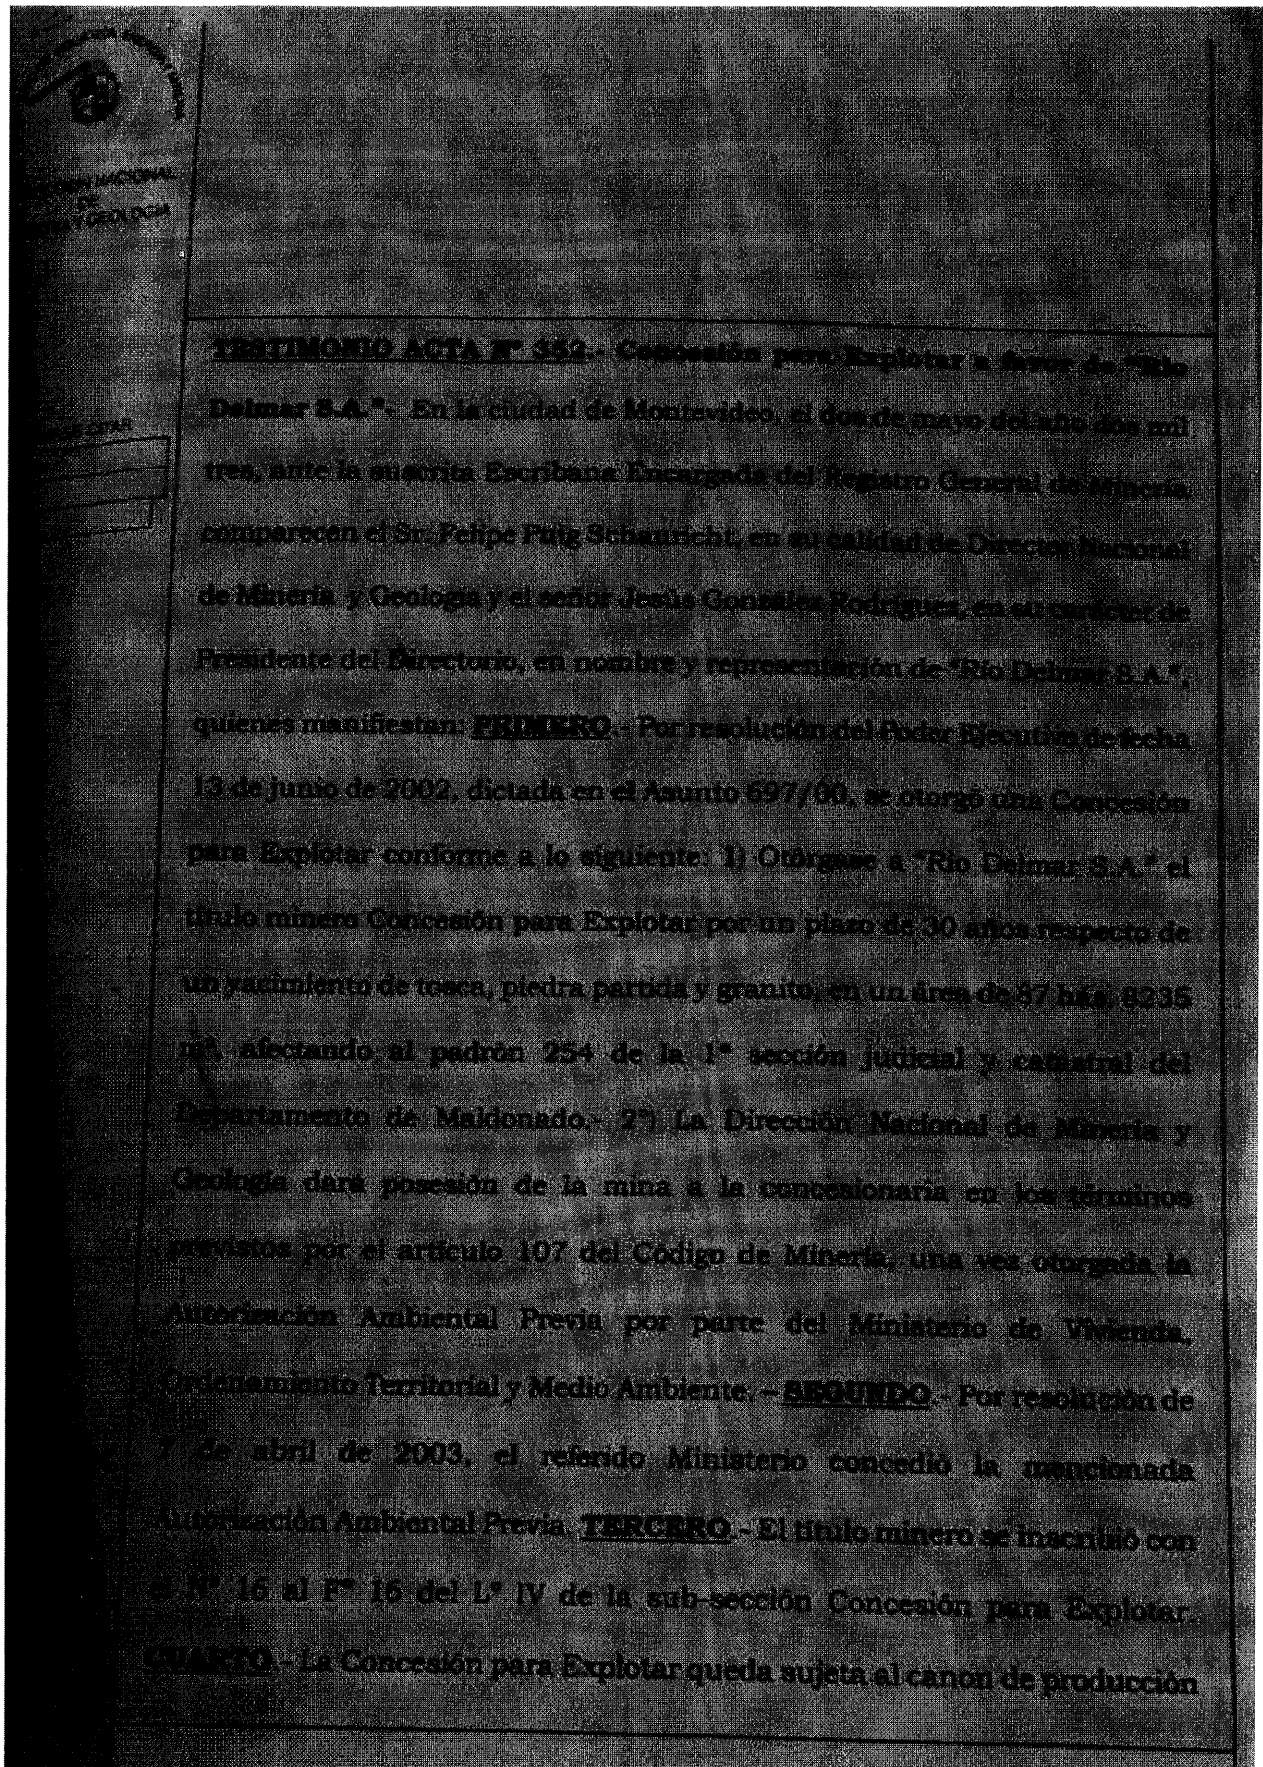 NACIONAL
DE
Y GEOLOGIA
CITAR
TESTIMONIO ACTA Nº 352.- Concesión para Explotar a favor de "Río
Delmar S.A."- En la ciudad de Montevideo, el dos de mayo del año dos mil
tres, ante la suscrita Escribana Encargada del Registro General de Minería
comparecen el Sr. Felipe Puig en su calidad de Director Nacional
de Minería y Geología y el señor Jesús González Rodríguez, en su carácter de
Presidente del Directorio, en nombre y representación de "Río Delmar S.A.",
quienes manifiestan: PRIMERO.- Por resolución del Poder Ejecutivo de fecha
13 de junio de 2002, dictada en el Asunto 697/00, se otorgó una Concesión
para Explotar conforme a lo siguiente: 1) Otórgase a "Río Delmar S.A." el
título minero Concesión para Explotar por un plazo de 30 años respecto de
un yacimiento de tosca, piedra partida y granito, en un área de 37 hás. 8235
m², afectando al padrón 254 de la 1ª sección judicial y catastral del
Departamento de Maldonado.- 2º) La Dirección Nacional de Minería y
Geología dará posesión de la mina a la concesionaria en los términos
previstos por el artículo 107 del Código de Minería, una vez otorgada la
Autorización Ambiental Previa por parte del Ministerio de Vivienda,
Ordenamiento Territorial y Medio Ambiente. – SEGUNDO.- Por resolución de
7 de abril de 2003, el referido Ministerio concedió la mencionada
Autorización Ambiental Previa. TERCERO.- El título minero se inscribió con
el Nº 16 al Fº 16 del Lº IV de la sub-sección Concesión para Explotar.
CUARTO.- La Concesión para Explotar queda sujeta al canon de producción